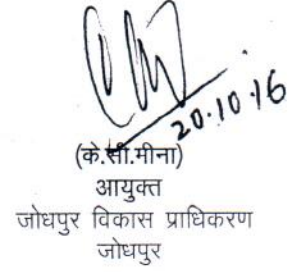 20.10.16
(के.सी.मीना)
आयुक्त
जोधपुर विकास प्राधिकरण
जोधपुर